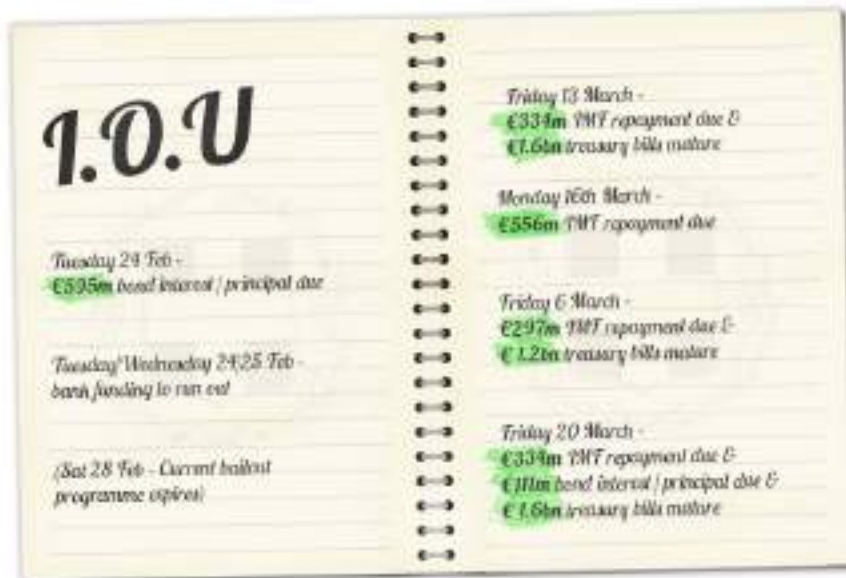 I.O.U
Tuesday 24 Feb -
€595m bond interest / principal due
Tuesday/Wednesday 24/25 Feb -
bank funding to run out
(Sat 28 Feb - Current bailout
programme expires)
Friday 13 March -
€334m IMF repayment due &
€1.6bn treasury bills mature
Monday 16th March -
€556m IMF repayment due
Friday 6 March -
€297m IMF repayment due &
€1.2bn treasury bills mature
Friday 20 March -
€334m IMF repayment due &
bond interest / principal due &
€1.6bn treasury bills mature